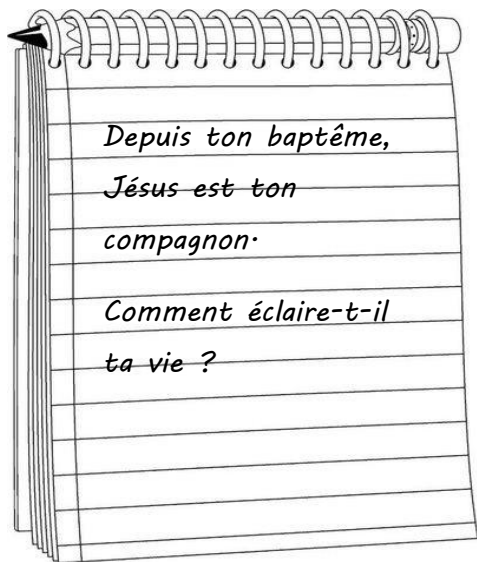 Depuis ton baptême,
Jésus est ton
compagnon.
Comment éclaire-t-il
ta vie ?